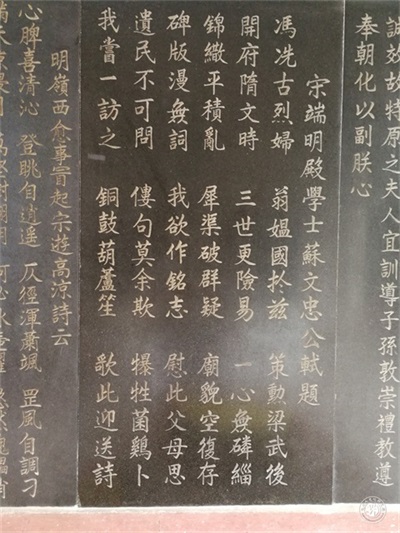 誠效故特原之夫人宜訓導子孫敦崇禮教遵
奉朝化以副朕心
宋端明殿學士蘇文忠公軾題
馮冼古烈婦 翁媼國於兹 策勳梁武後
開府隋文時 三世更險易 一心無磷緇
錦繖平積亂 犀渠破群疑 廟貌空復存
碑版漫無詞 我欲作銘志 慰此父母思
遺民不可問 僂句莫余欺 犦牲菌鷄卜
我嘗一訪之 銅鼓葫蘆笙 歌此迎送詩
明嶺西僉事起宗遊高涼詩云
心脾喜清沁 登眺自逍遥 仄徑渾蕭颯 罡風自調刁